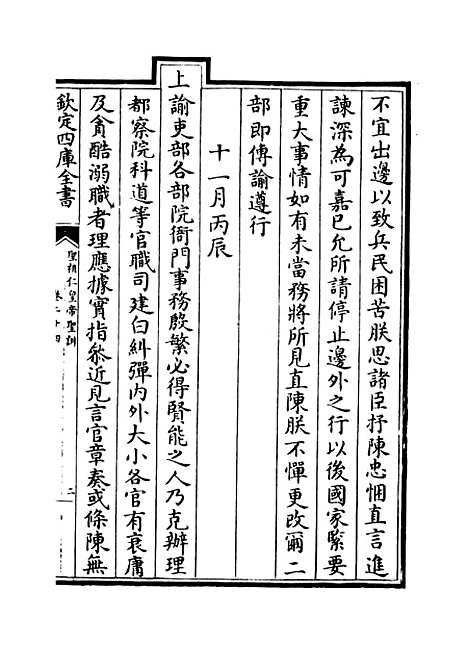 不宜出邊以致兵民困苦朕思諸臣抒陳忠悃直言進
諫深為可嘉已允所請停止邊外之行以後國家緊要
重大事情如有未當務將所見直陳朕不憚更改爾二
部即傳諭遵行
十一月丙辰
上諭吏部各部院衙門事務殷繁必得賢能之人乃克辦理
都察院科道等官職司建白糾彈内外大小各官有衰庸
及貪酷溺職者理應據實指叅近見言官章奏或條陳無
欽定四庫全書
聖祖仁皇帝聖訓
卷二十四
二